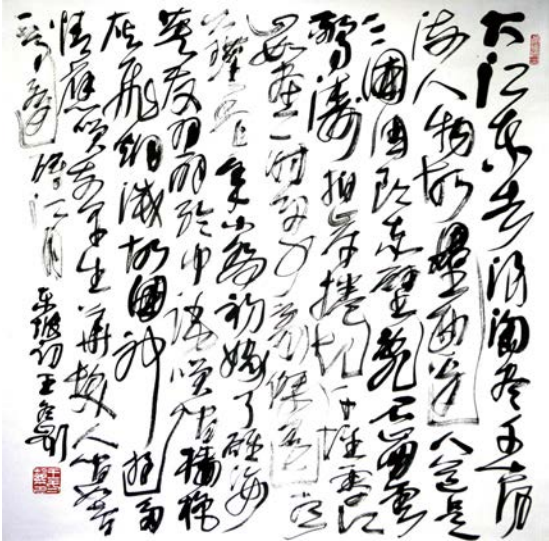 大江东去浪淘尽千古风
流人物故垒西边人道是
三國周郎赤壁乱石崩雲
驚涛拍岸捲起千堆雪江
山如画一时多少豪傑遥想
公瑾当年小乔初嫁了雄姿
英发羽扇纶巾谈笑间樯橹
灰飞烟灭故國神游多
情應笑我早生華发人间如梦
一尊还酹江月
东坡词王